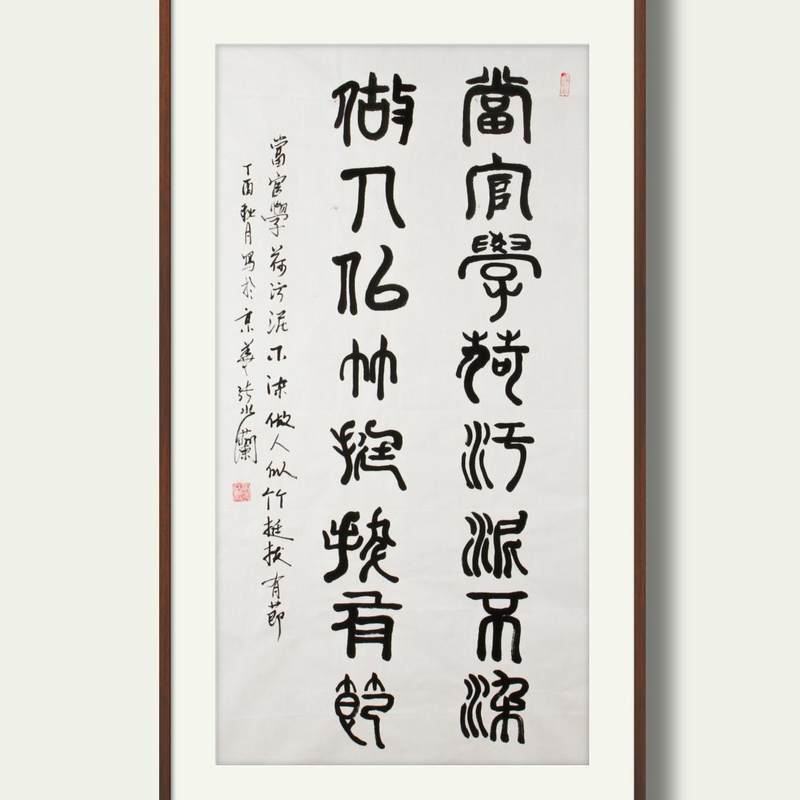 當官學荷污泥不染
做人似竹挺拔有節
當官學荷污泥不染做人似竹挺拔有節
丁酉秋月写於京華张 蘭